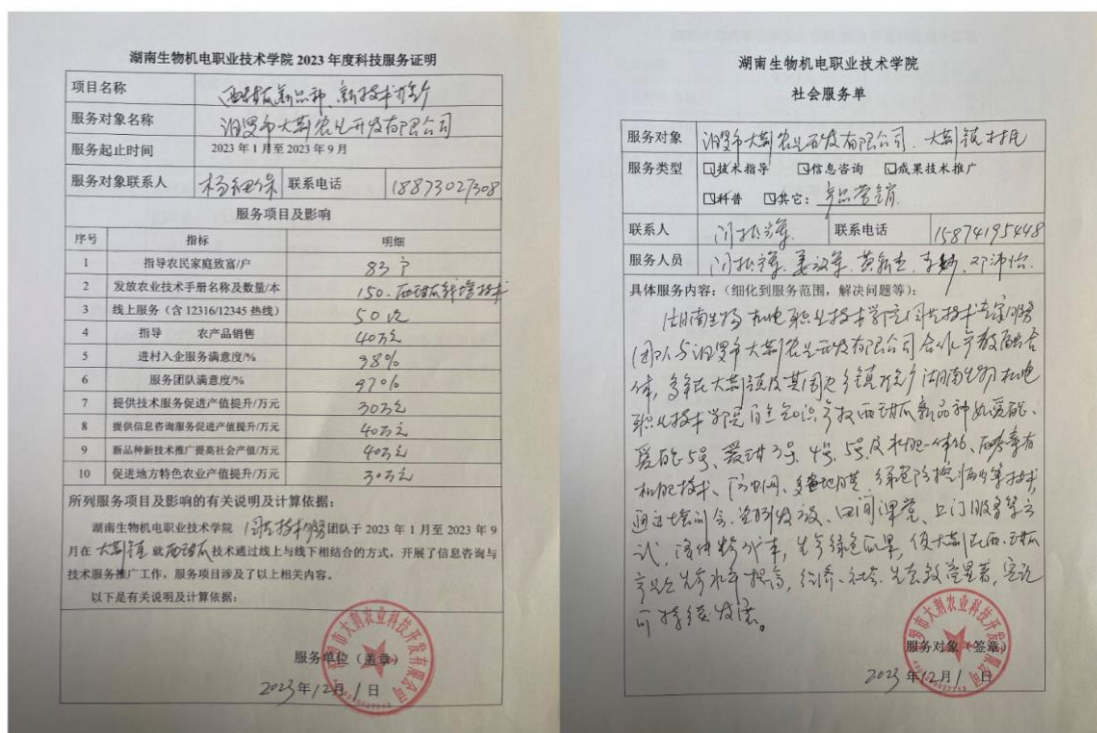 湖南生物机电职业技术学院 2023 年度科技服务证明
项目名称 西甜瓜新品种、新技术推介
服务对象名称 汨罗市大荆农业开发有限公司
服务起止时间 2023 年 1 月至 2023 年 9 月
服务对象联系人 杨细保 联系电话 18873027308
服务项目及影响
序号 指标 明细
1 指导农民家庭致富/户 83户
2 发放农业技术手册名称及数量/本 150.西甜瓜种植技术
3 线上服务（含 12316/12345 热线） 50次
4 指导 农产品销售 40万元
5 进村入企服务满意度/% 98%
6 服务团队满意度/% 97%
7 提供技术服务促进产值提升/万元 30万元
8 提供信息咨询服务促进产值提升/万元 40万元
9 新品种新技术推广提高社会产值/万元 40万元
10 促进地方特色农业产值提升/万元 30万元
所列服务项目及影响的有关说明及计算依据：
湖南生物机电职业技术学院 园艺技术服务团队于 2023 年 1 月至 2023 年 9
月在 大荆镇 就 西甜瓜 技术通过线上与线下相结合的方式，开展了信息咨询与
技术服务推广工作，服务项目涉及了以上相关内容。
以下是有关说明及计算依据：
服务单位（盖章）
汨罗市大荆农业科技开发有限公司
2023年12月1日
湖南生物机电职业技术学院
社会服务单
服务对象 汨罗市大荆农业开发有限公司、大荆镇村民
服务类型 技术指导 信息咨询 成果技术推广
科普 其它：产品营销
联系人 联系电话 15874195448
服务人员
具体服务内容：（细化到服务范围，解决问题等）：
湖南生物机电职业技术学院园艺技术专家服务
团队与汨罗市大荆农业开发有限公司合作产教融合
体，多年在大荆镇及其周边乡镇推介湖南生物机电
职业技术学院自主知识产权西甜瓜新品种如爱
5号、爱甜3号、4号、5号及水肥一体化、有
机肥技术、防虫网、地膜、绿色防控病虫等技术，
通过培训会、资料发放、田间课堂、上门服务等方
式，生产绿色瓜果，使大荆西甜瓜
产业生产水平提高，经济、社会、生态效益显著，实现
可持续发展。
服务对象（签章）
汨罗市大荆农业科技开发有限公司
2023年12月1日